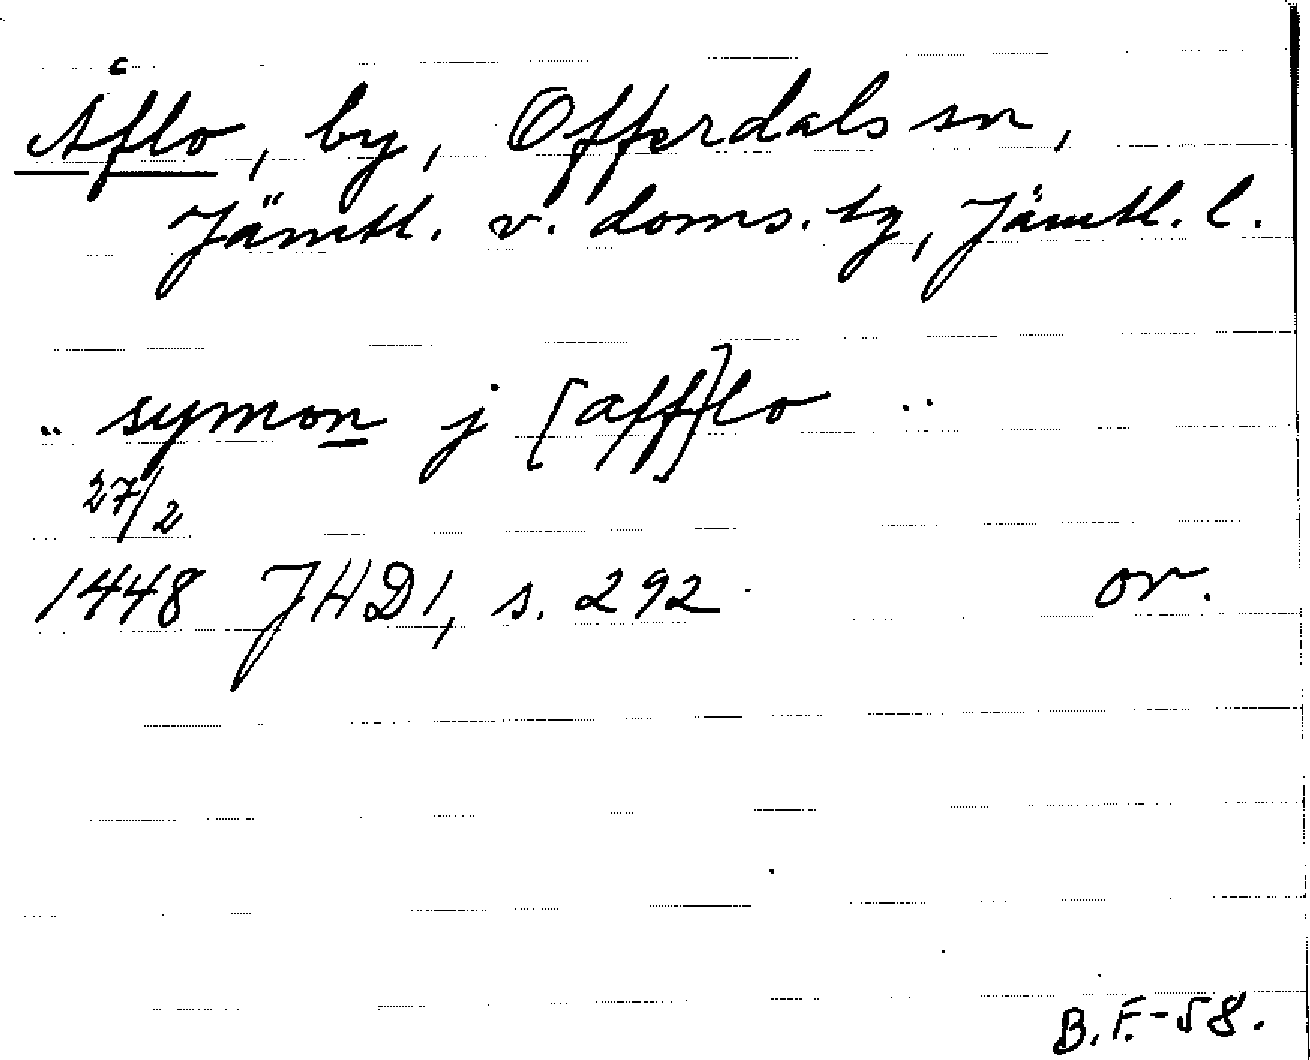 Åflo, by, Offerdals sn,
Jämtl. v. doms. tg, Jämtl. l.
.. symon j [aff]lo ..
27/2
1448 JHD1, s. 292 or.
B.F.-58.